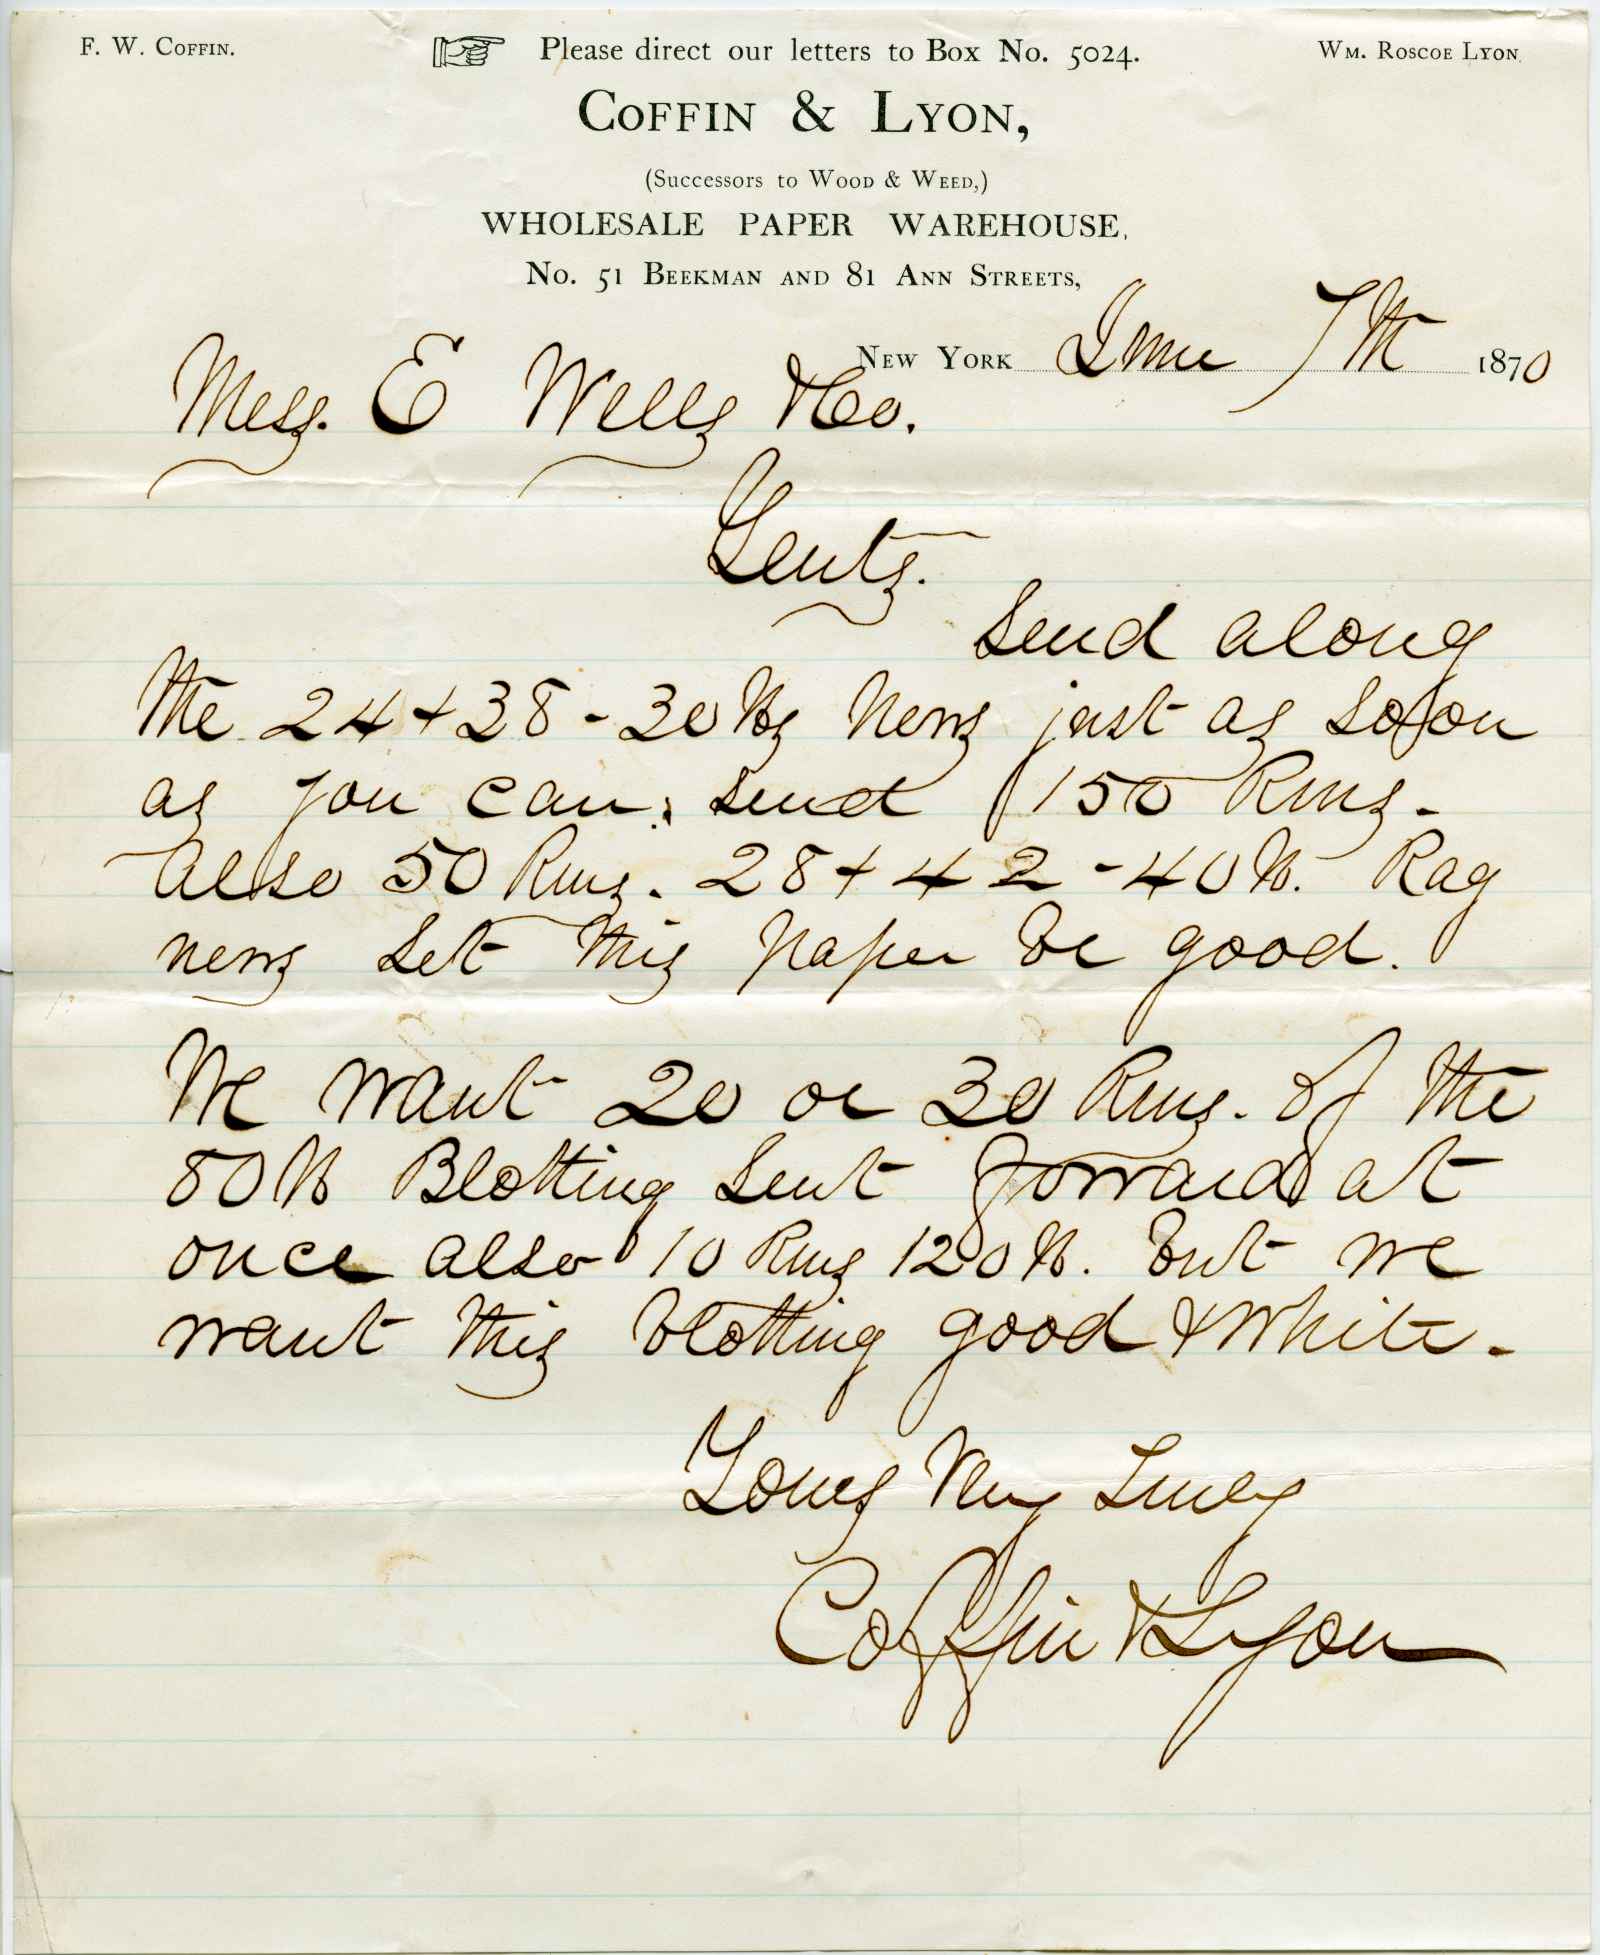 F. W. Coffin.
☞ Please direct our letters to Box No. 5024.
Wm. Roscoe Lyon.
Coffin & Lyon,
(Successors to Wood & Weed,)
WHOLESALE PAPER WAREHOUSE,
No. 51 Beekman and 81 Ann Streets,
New York June 7th 1870
Mess. E Wells & Co.
Gents.
Send along
the 24 + 38 - 30 lbs News just as soon
as you can, send 150 Rms.
Also 50 Rms. 28 + 42 - 40 lb. Rag
news Let this paper be good.
We want 20 or 30 Rms. of the
80 lb Blotting sent forward at
once also 10 Rms 120 lb. but we
want this blotting good & white.
Yours Very Truly
Coffin & Lyon